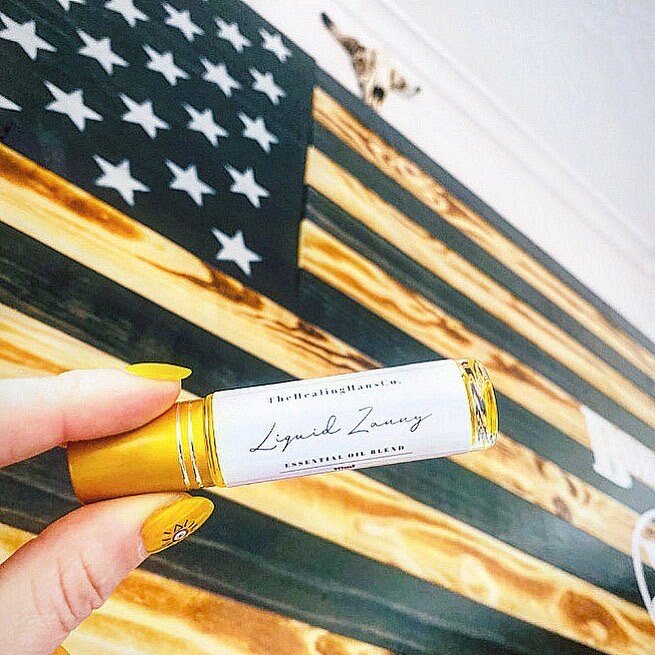 TheHealingHausCo.
Liquid Zanny
ESSENTIAL OIL BLEND
10ml